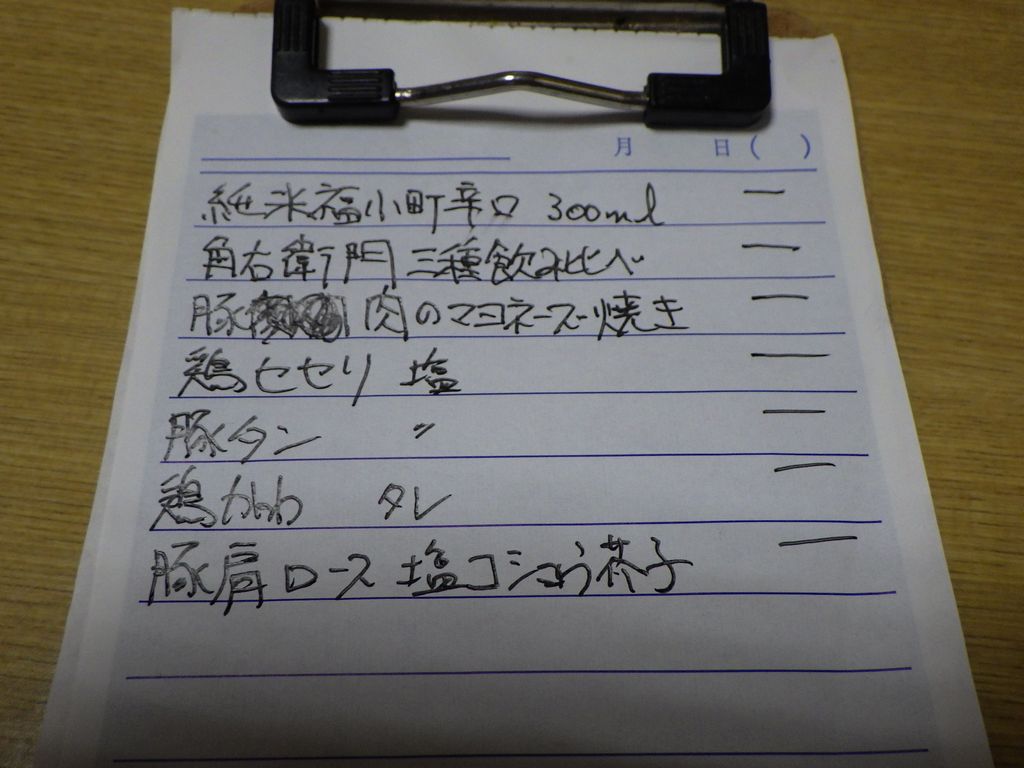 月 日( )
純米福小町辛口 300ml 一
角右衛門三種飲み比べ 一
豚肉のマヨネーズー焼き 一
鶏セセリ 塩 一
豚タン 〃 一
鶏かわ タレ 一
豚肩ロース 塩コショウ芥子 一